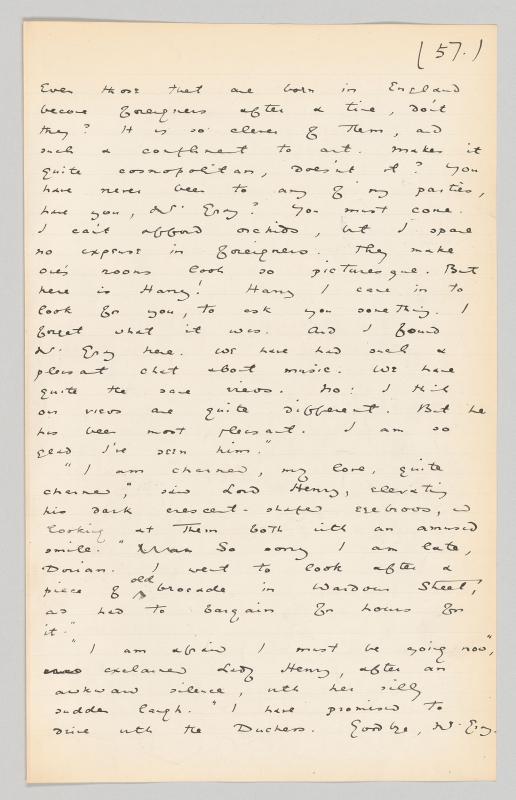 (57.)
Even those that are born in England
become foreigners after a time, don't
they? It is so clever of them, and
such a compliment to art. Makes it
quite cosmopolitan, doesn't it? You
have never been to any of my parties,
have you, Mr. Gray? You must come.
I can't afford orchids, but I spare
no expense in foreigners. They make
one's rooms look so picturesque. But
here is Harry! Harry I came in to
look for you, to ask you something. I
forget what it was. And I found
Mr. Gray here. We have had such a
pleasant chat about music. We have
quite the same views. No: I think
our views are quite different. But he
has been most pleasant. I am so
glad I've seen him."
"I am charmed, my love, quite
charmed," said Lord Henry, elevating
his dark crescent-shaped eyebrows, and
looking at them both with an amused
smile. "So sorry I am late,
Dorian. I went to look after a
piece of old brocade in Wardour Street,
and had to bargain for hours for
it."
"I am afraid I must be going now",
exclaimed Lady Henry, after an
awkward silence, with her silly
sudden laugh. "I have promised to
drive with the Duchess. Goodbye, Mr. Gray.